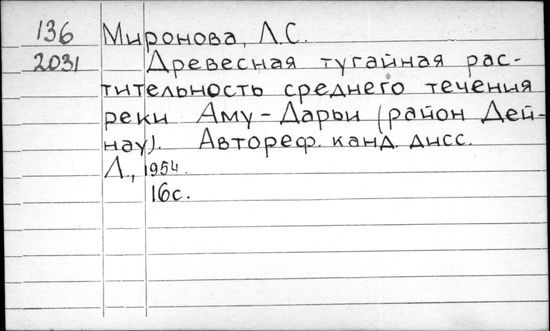 136 Миронова, Л.С.
2031 Древесная тугайная рас-
тительность среднего течения
реки Аму-Дарьи (район Дей-
нау). Автореф. канд. дисс.
Л., 1954.
16с.